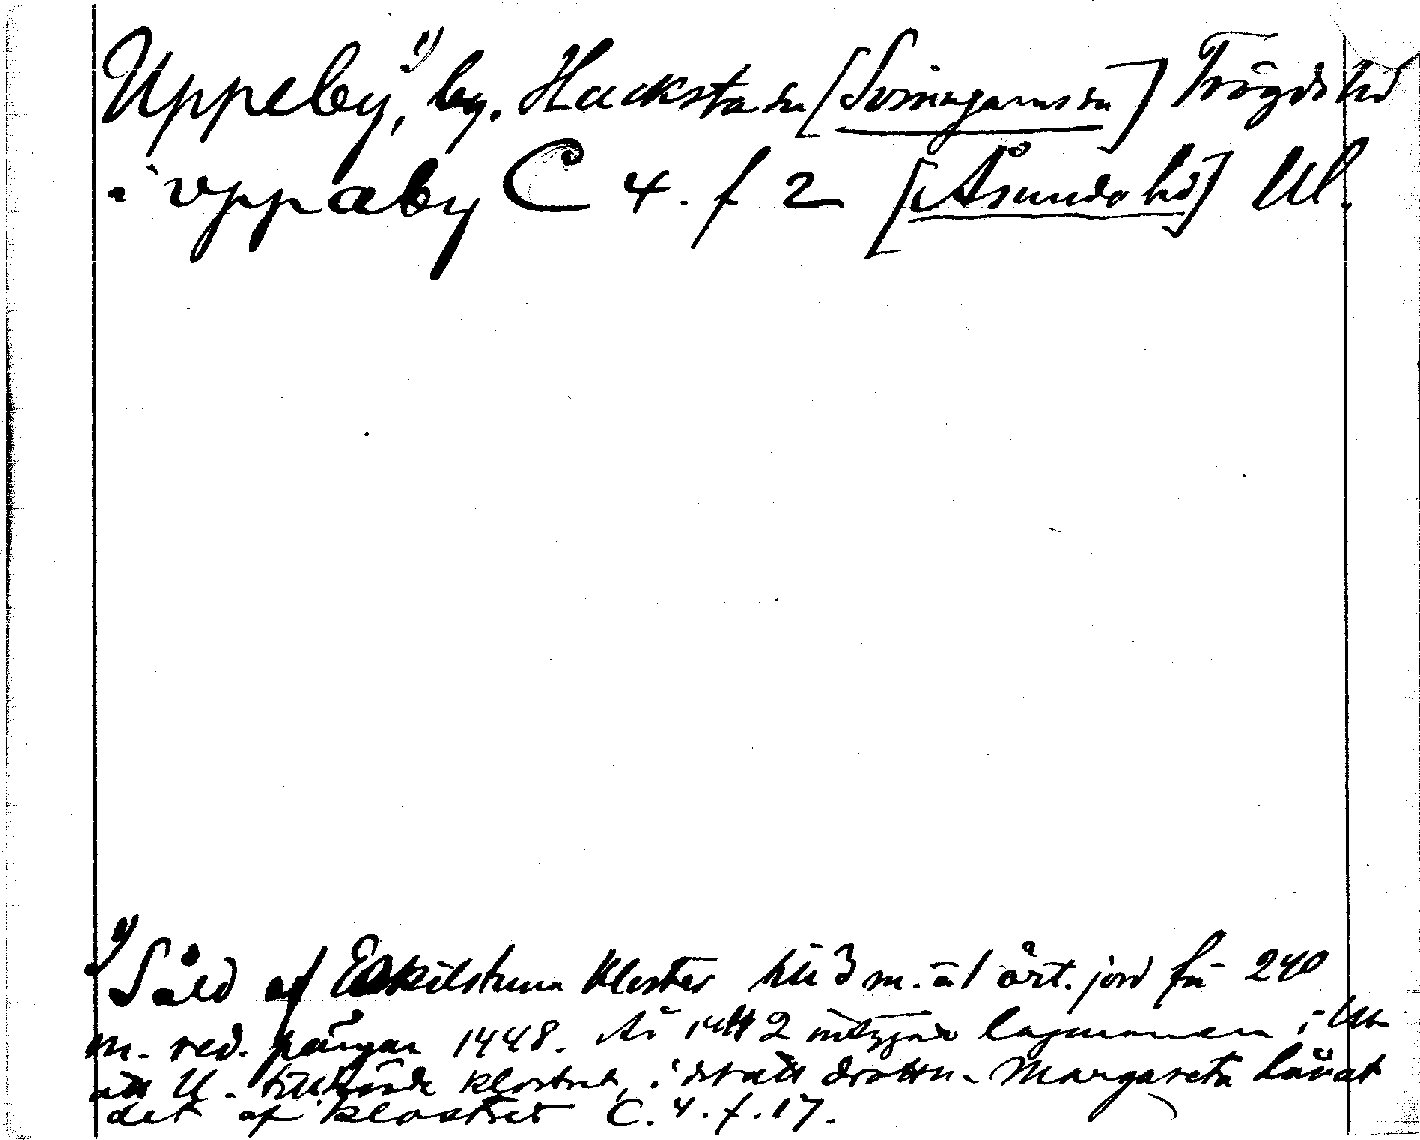 Uppeby,¹⁾ by. Hacksta sn [Svinegarns sn] Trögds hd
i vppaby C 4. f 2 [Åsunda hd] Upl.
¹⁾ Såld af Eskilstuna kloster till 3 m. ä 1 ört. jord för 240
m. red. pängar 1448. År 1442 intygade lagmannen i
att U. tillhörde klostret, i det att drottn. Margareta lånat
det af klostret C. 4. f. 17.